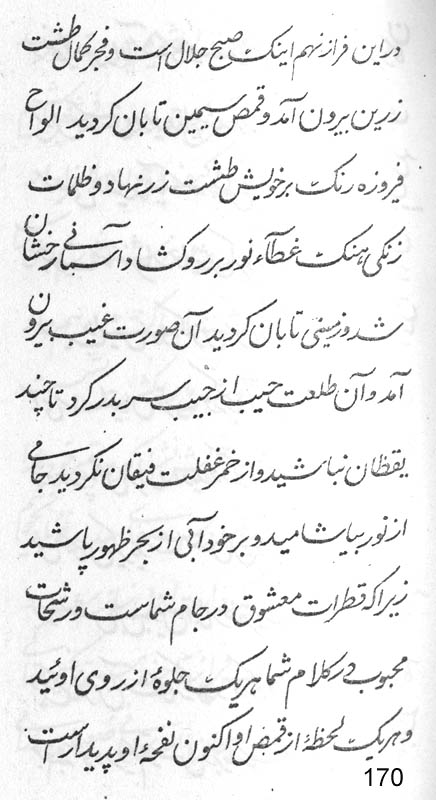 در این فراز نهم اینک صبح جلال است و فجر کمال طشت
زرین بیرون آمد و قمص سیمین تابان کردید الواح
فیروزه رنک بر خویش طشت زر نهاد و ظلمات
زنکی هنک غطآء نور بر رو کشاد آسمانی رخشان
شد و زمینی تابان کردید آن صورت غیب بیرون
آمد و آن طلعت حبیب از جیب سر بدر کرد تا چند
یقظان نباشید و از خمر غفلت فیقان نکردید جامی
از نور بیاشامید و بر خود آبی از بحر ظهور پاشید
زیرا که قطرات معشوق در جام شماست و رشحات
محبوب در کلام شما هر یک جلوهٔ از روی اوئید
و هر یک لحظهٔ از قمص او اکنون نفحهٔ او پدیدار است
170